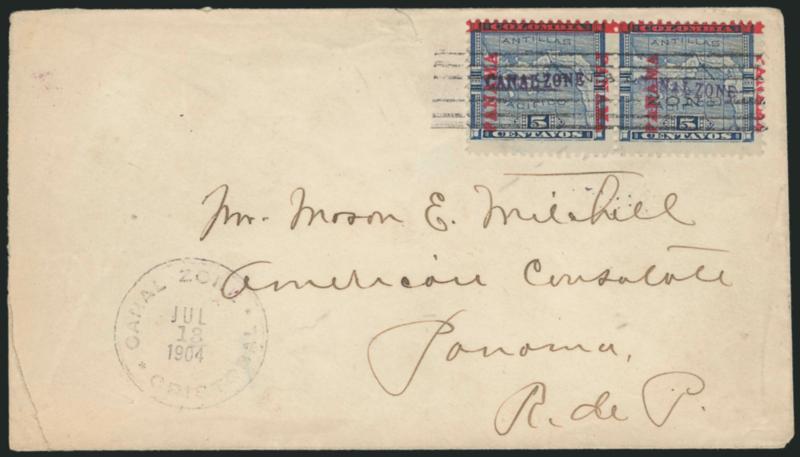 COLOMBIA COLOMBIA
ANTILLAS ANTILLAS
PANAMA PANAMA PANAMA PANAMA
CANAL ZONE CANAL ZONE
PACIFICO
5 5
CENTAVOS CENTAVOS
Mr. Mason E. Mitchell
American Consulate
Panama,
R. de P.
CANAL ZONE
JUL
13
1904
CRISTOBAL